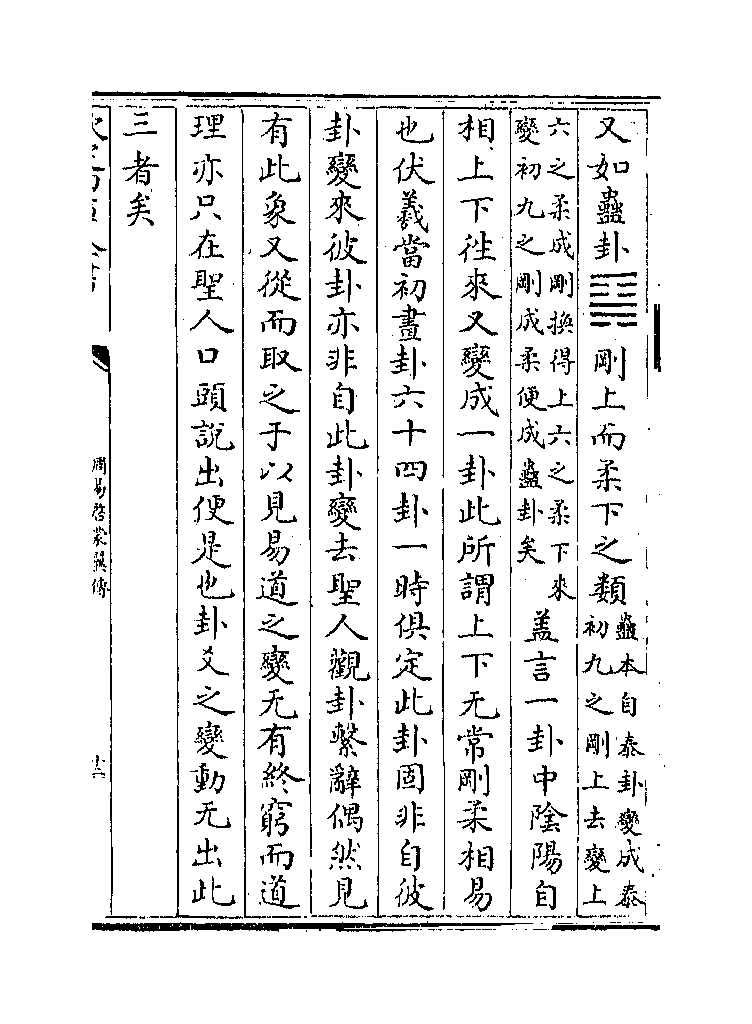 又如蠱卦䷑剛上而柔下之類蠱本自泰卦變成泰初九之剛上去變上
六之柔成剛換得上六之柔下來變初九之剛成柔便成蠱卦矣盖言一卦中陰陽自
相上下徃來又變成一卦此所謂上下无常剛柔相易
也伏羲當初畫卦六十四卦一時俱定此卦固非自彼
卦變來彼卦亦非自此卦變去聖人觀卦繫辭偶然見
有此象又從而取之于以見易道之變无有終窮而道
理亦只在聖人口頭說出便是也卦爻之變動无出此
三者矣
周易啓蒙翼傳
十二